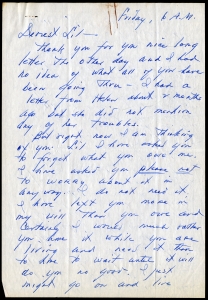 Friday, 6 A.M.
Dearest Lil -
Thank you for you nice long
letter the other day and I had
no idea of what all of you have
been going thru - I had a
letter from Helen about 2 months
ago but she did not mention
any of her troubles.
But right now I am thinking
of you. Lil I have asked you
to forget what you owe me.
I have asked you please not
to worry about it in
any way. I do not need it
I have left you more in
my will than you owe and
certainly I would much rather
you have it while you are
living and need it than
to have to wait until it will
do you no good. I just
might go on and live